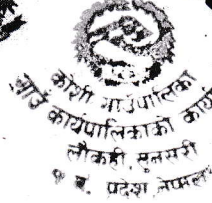 कोशी गाउँपालिका
गाउँ कार्यपालिकाको कार्या
लौकही, सुनसरी
१ नं. प्रदेश, नेपाल